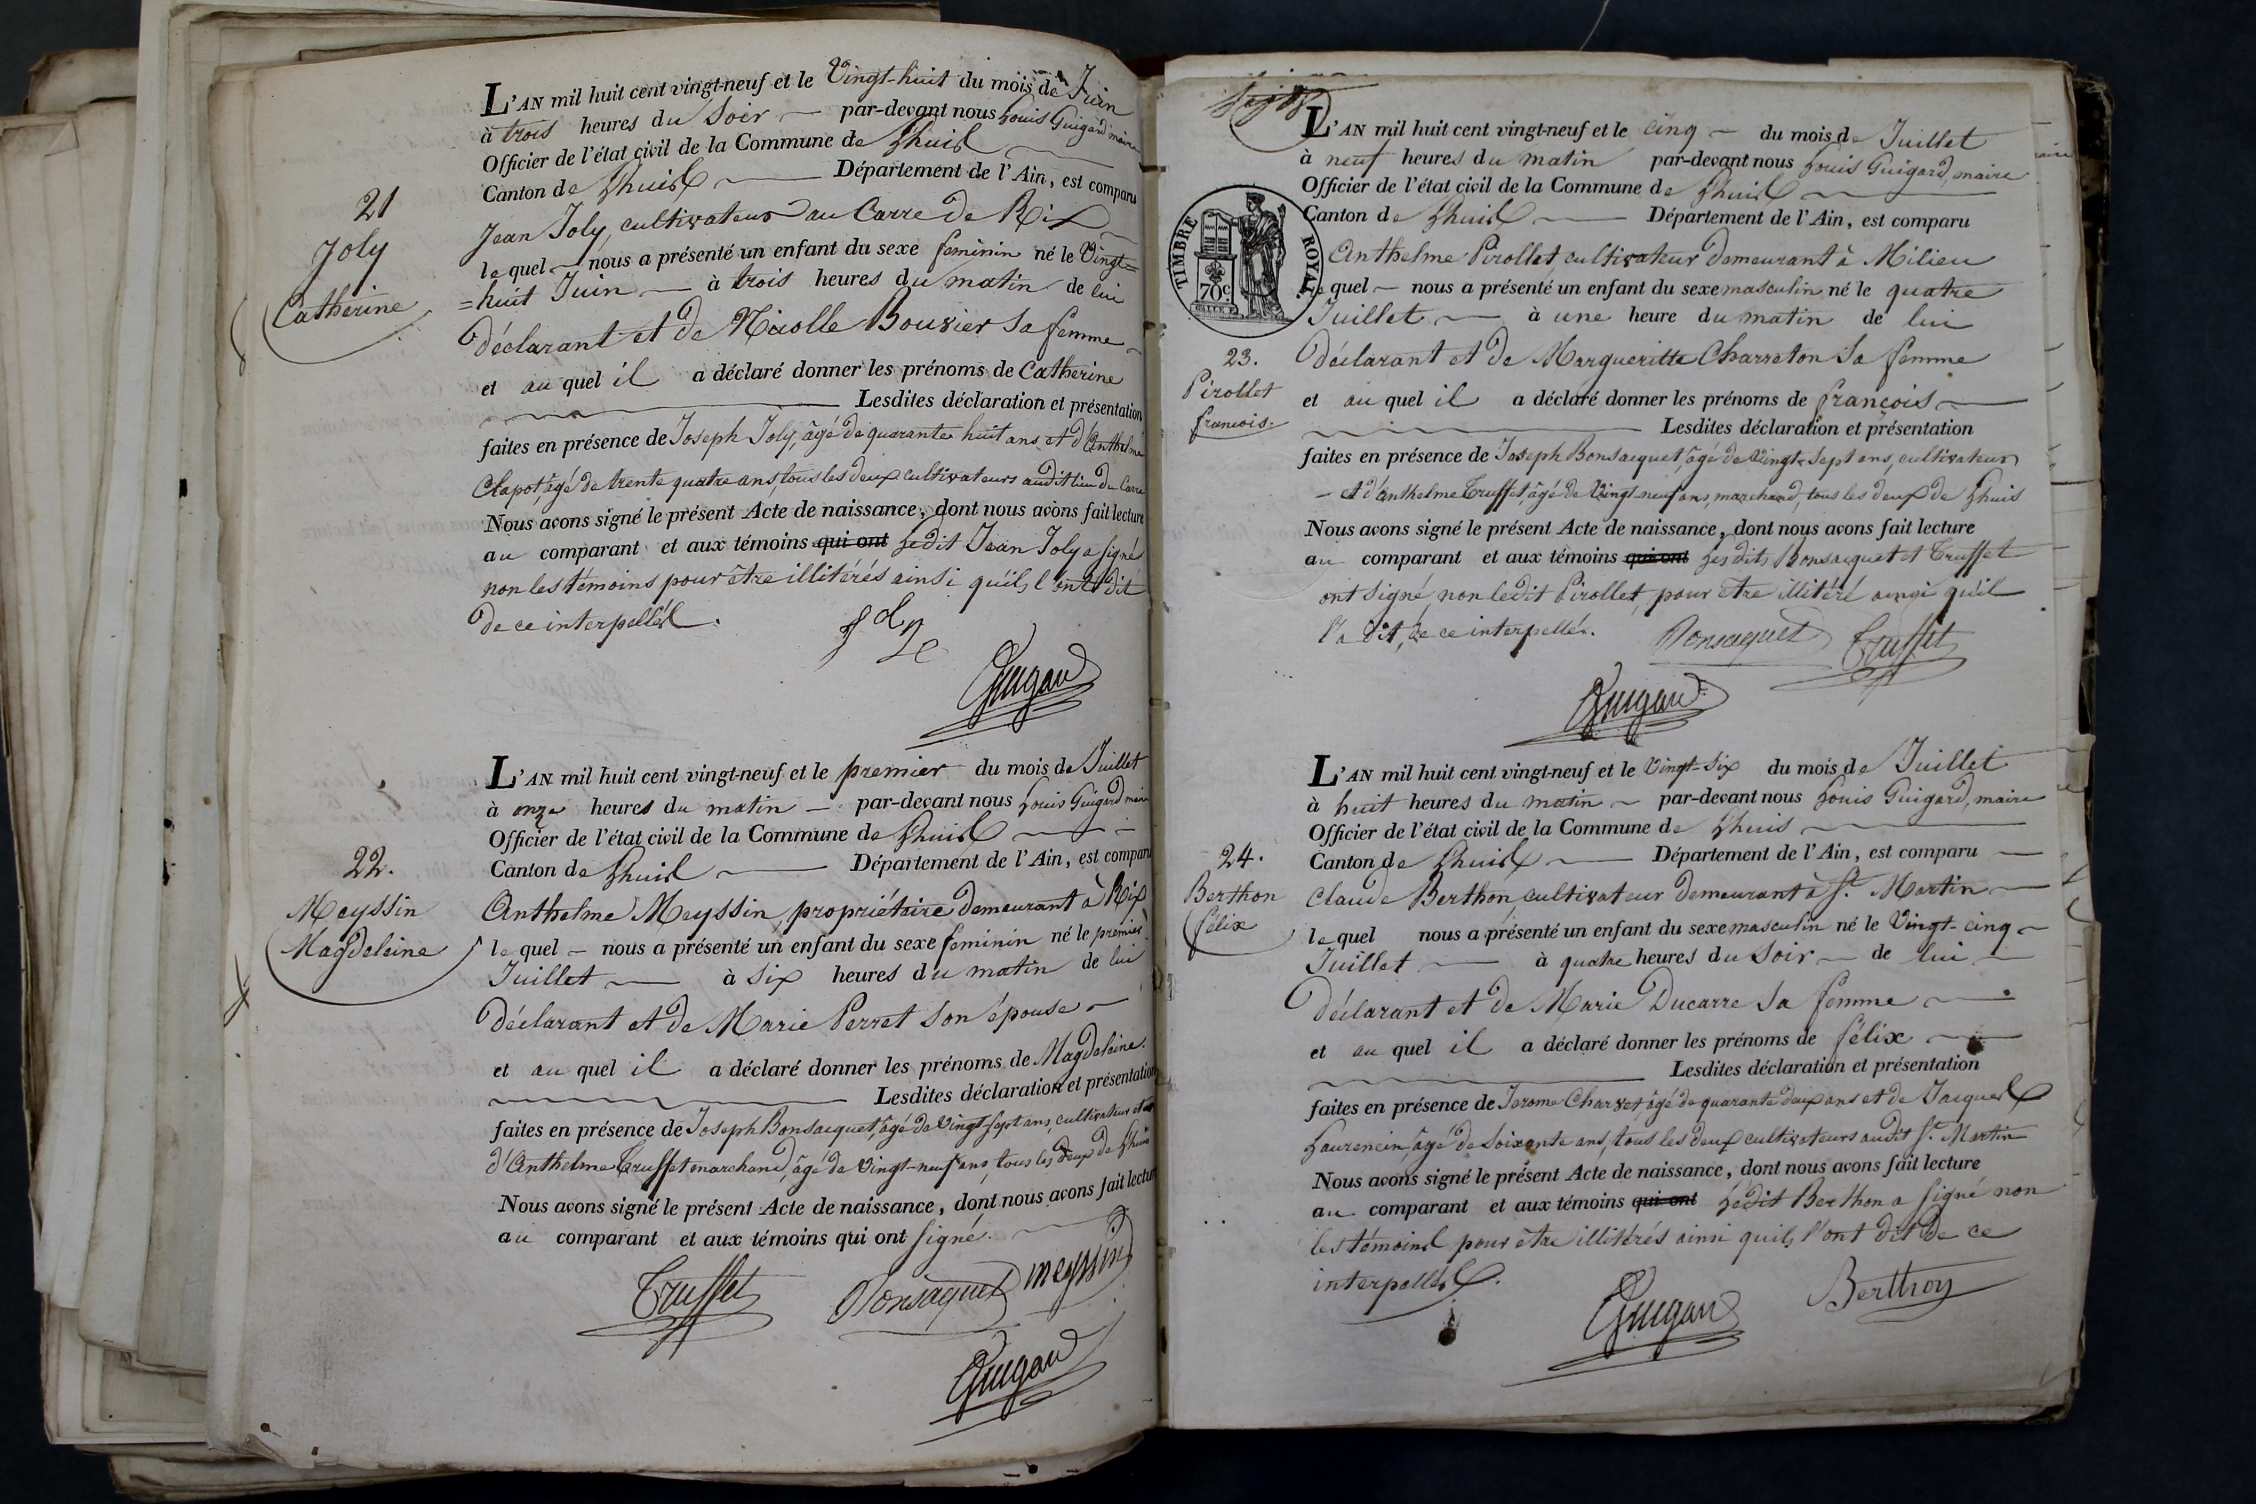 21
Joly
Catherine
L'AN mil huit cent vingt-neuf et le Vingt-huit du mois de Juin
à trois heures du Soir — par-devant nous Louis Guigard maire
Officier de l'état civil de la Commune de Lhuis —
Canton de Lhuis — Département de l'Ain, est comparu
Jean Joly, cultivateur au Carre de Rix —
lequel — nous a présenté un enfant du sexe feminin né le Vingt=
=huit Juin — à trois heures du matin de lui
déclarant et de Nicolle Bouvier Sa femme —
et au quel il a déclaré donner les prénoms de Catherine
— Lesdites déclaration et présentation
faites en présence de Joseph Joly, âgé de quarante huit ans et d'Anthelme
Clapot âgé de trente quatre ans, tous les deux cultivateurs audit lieu du Carre
Nous avons signé le présent Acte de naissance, dont nous avons fait lecture
au comparant et aux témoins qui ont Ledit Jean Joly a signé
non les témoins pour être illitérés ainsi qu'ils l'ont dit
de ce interpellés.
Guigard
22.
Meyssin
Magdeleine
L'AN mil huit cent vingt-neuf et le premier du mois de Juillet
à onze heures du matin — par-devant nous Louis Guigard maire
Officier de l'état civil de la Commune de Lhuis —
Canton de Lhuis — Département de l'Ain, est comparu
Anthelme Meyssin, propriétaire demeurant à Rix
lequel — nous a présenté un enfant du sexe feminin né le premier
Juillet — à six heures du matin de lui
déclarant et de Marie Perret Son épouse —
et au quel il a déclaré donner les prénoms de Magdeleine.
— Lesdites déclaration et présentation
faites en présence de Joseph Bonsacquet, âgé de vingt-sept ans, cultivateur et
d'Anthelme Truffet marchand, âgé de vingt-neuf ans, tous les deux de Lhuis
Nous avons signé le présent Acte de naissance, dont nous avons fait lecture
au comparant et aux témoins qui ont signé.
Truffet Bonsaquet meyssin
Guigard
TIMBRE ROYAL
70c
23.
Pirollet
francois.
L'AN mil huit cent vingt-neuf et le cinq — du mois de Juillet
à neuf heures du matin par-devant nous Louis Guigard, maire
Officier de l'état civil de la Commune de Lhuis —
Canton de Lhuis — Département de l'Ain, est comparu
Anthelme Pirollet, cultivateur demeurant à Milieu
lequel — nous a présenté un enfant du sexe masculin né le quatre
Juillet — à une heure du matin de lui
déclarant et de Margueritte Charreton Sa femme
et au quel il a déclaré donner les prénoms de françois —
— Lesdites déclaration et présentation
faites en présence de Joseph Bonsacquet, âgé de Vingt-Sept ans, cultivateur
— et d'Anthelme Truffet, âgé de Vingt-neuf ans, marchand, tous les deux de Lhuis
Nous avons signé le présent Acte de naissance, dont nous avons fait lecture
au comparant et aux témoins qui ont Les dits Bonsacquet et Truffet
ont signé non ledit Pirollet, pour être illitéré ainsi qu'il
l'a dit, de ce interpellé.
Bonsaquet Truffet
Guigard
24.
Berthon
félix
L'AN mil huit cent vingt-neuf et le Vingt-Six du mois de Juillet
à huit heures du matin — par-devant nous Louis Guigard, maire
Officier de l'état civil de la Commune de Lhuis —
Canton de Lhuis — Département de l'Ain, est comparu —
Claude Berthon, cultivateur demeurant à St. Martin —
lequel nous a présenté un enfant du sexe masculin né le Vingt-cinq —
Juillet — à quatre heures du Soir — de lui —
déclarant et de Marie Ducarre Sa femme —
et au quel il a déclaré donner les prénoms de félix —
— Lesdites déclaration et présentation
faites en présence de Jerome Charvet âgé de quarante deux ans et de Jacques
Laurencin, âgé de Soixante ans, tous les deux cultivateurs audit St. Martin
Nous avons signé le présent Acte de naissance, dont nous avons fait lecture
au comparant et aux témoins qui ont Ledit Berthon a signé non
les témoins pour être illitérés ainsi qu'ils l'ont dit de ce
interpellés.
Guigard Berthon